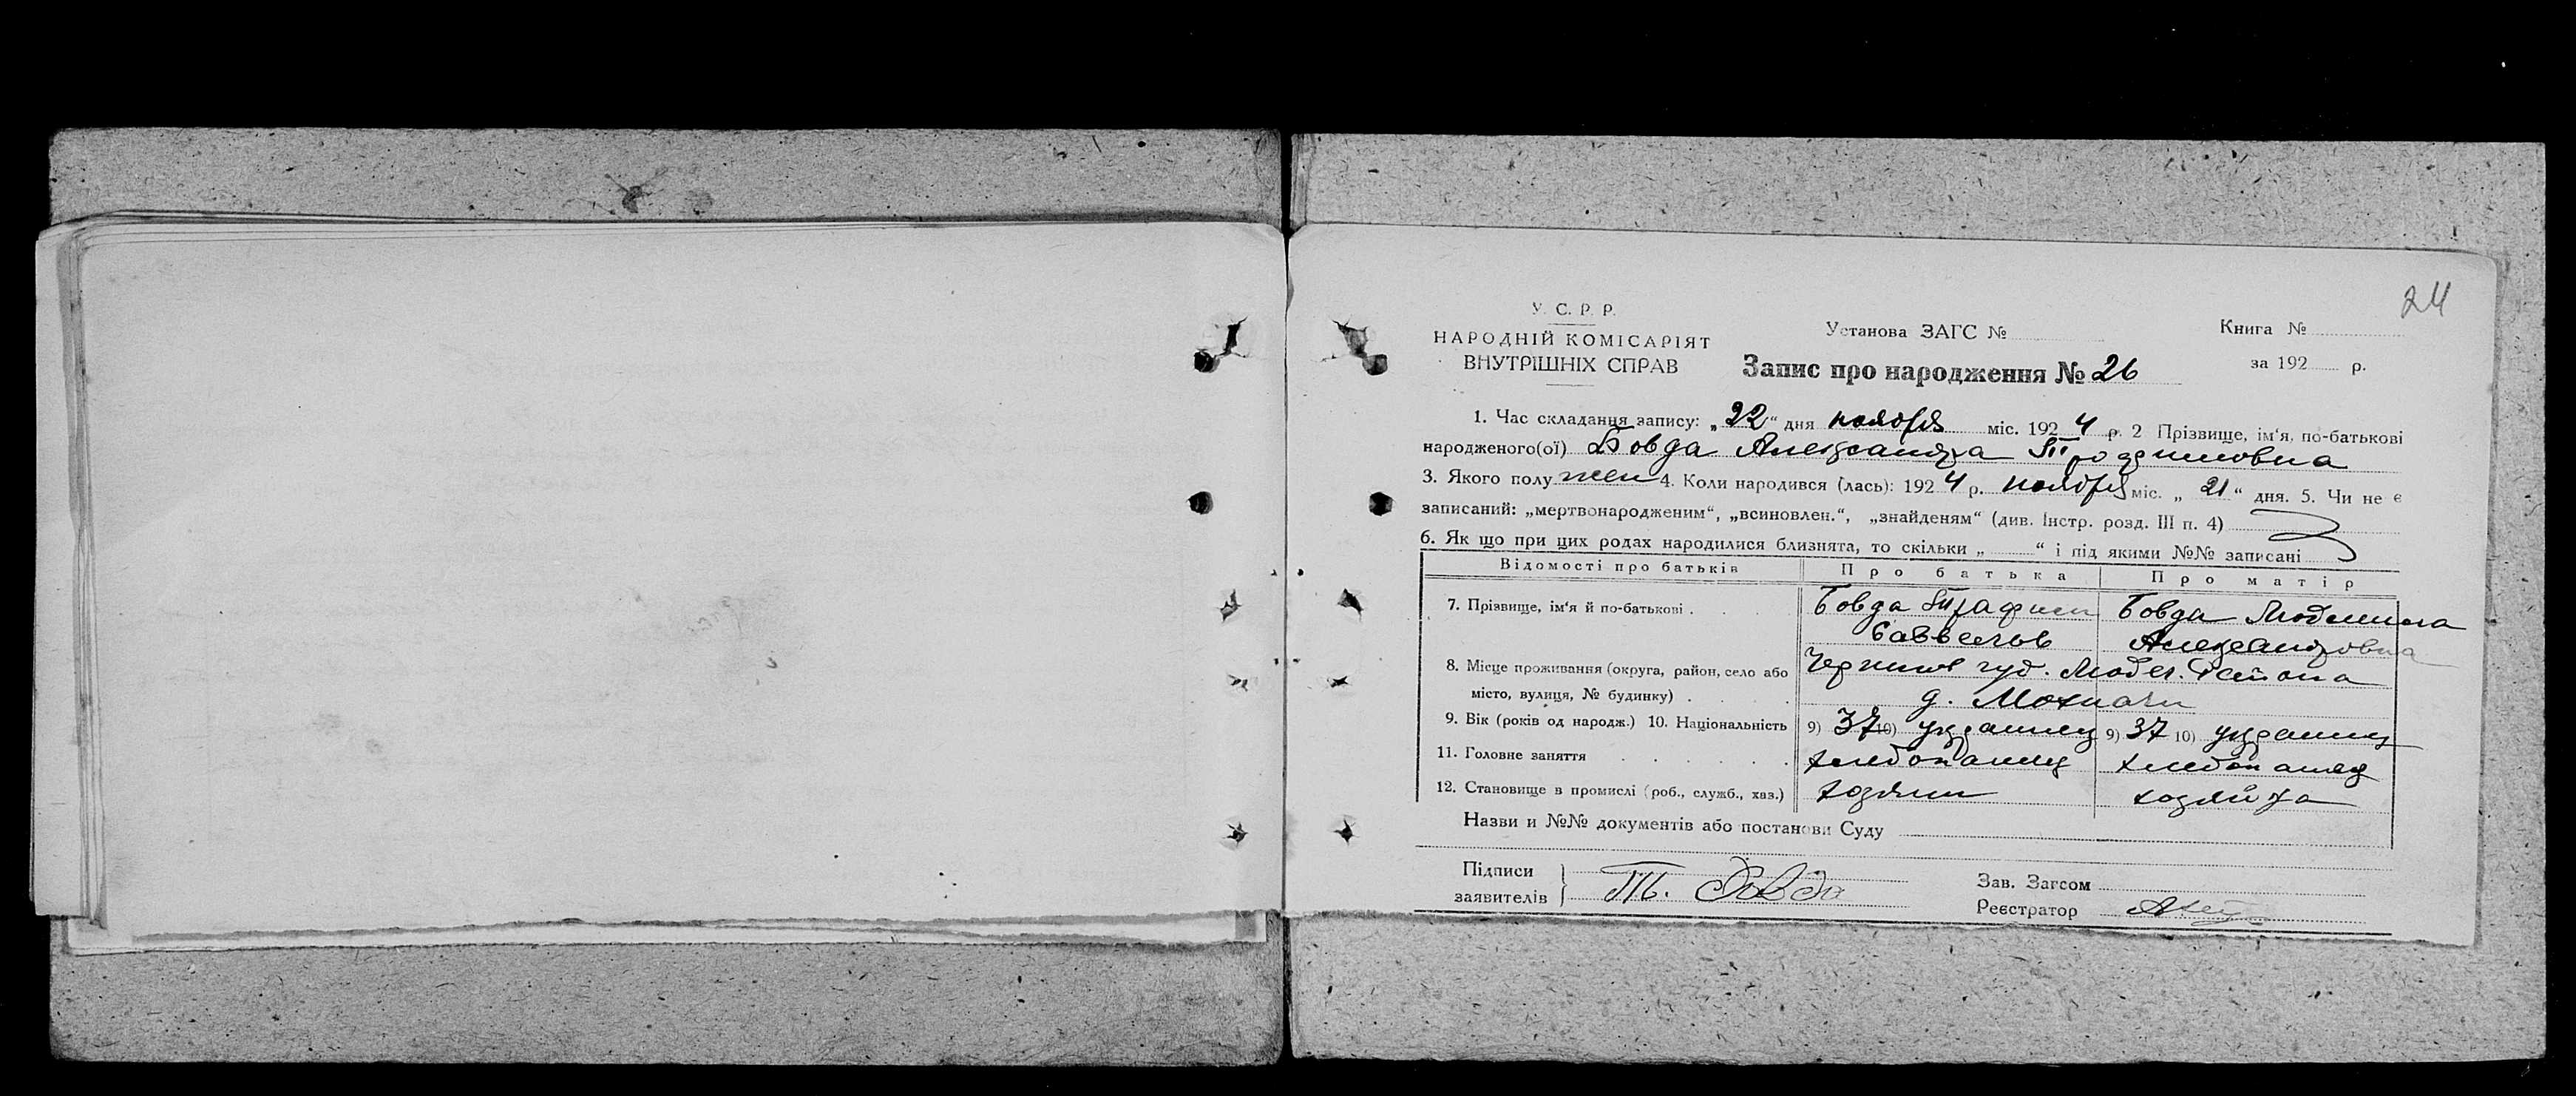 24
У. С. Р. Р.
НАРОДНІЙ КОМІСАРІЯТ
ВНУТРІШНІХ СПРАВ
Установа ЗАГС №
Книга №
за 192 р.
Запис про народження № 26
1. Час складання запису: „22“ дня ноября міс. 1924 р. 2 Прізвище, ім‘я, по-батькові
народженого(ої) Бовда Александра
3. Якого полу жен 4. Коли народився (лась): 1924 р. ноября міс. „21“ дня. 5. Чи не є
записаний: „мертвонародженим“, „всиновлен.“, „знайденям“ (див. Інстр. розд. III п. 4)
6. Як що при цих родах народилися близнята, то скільки „ “ і під якими №№ записані
Відомості про батьків Про батька Про матір
7. Прізвище, ім‘я й по-батькові . Бовда Бовда Людмила
Александровна
8. Місце проживання (округа, район, село або Чернигов губ. Любеч. Района
місто, вулиця, № будинку) . д. Мохначи
9. Вік (років од народж.) 10. Національність 9) 37 10) украинец 9) 37 10) украинц
11. Головне заняття хлебопашец хлебопашец
12. Становище в промислі (роб., служб., хаз.) хозяин хозяйка
Назви и №№ документів або постанови Суду
Підписи
заявителів Т. Бовда
Зав. Загсом
Реєстратор